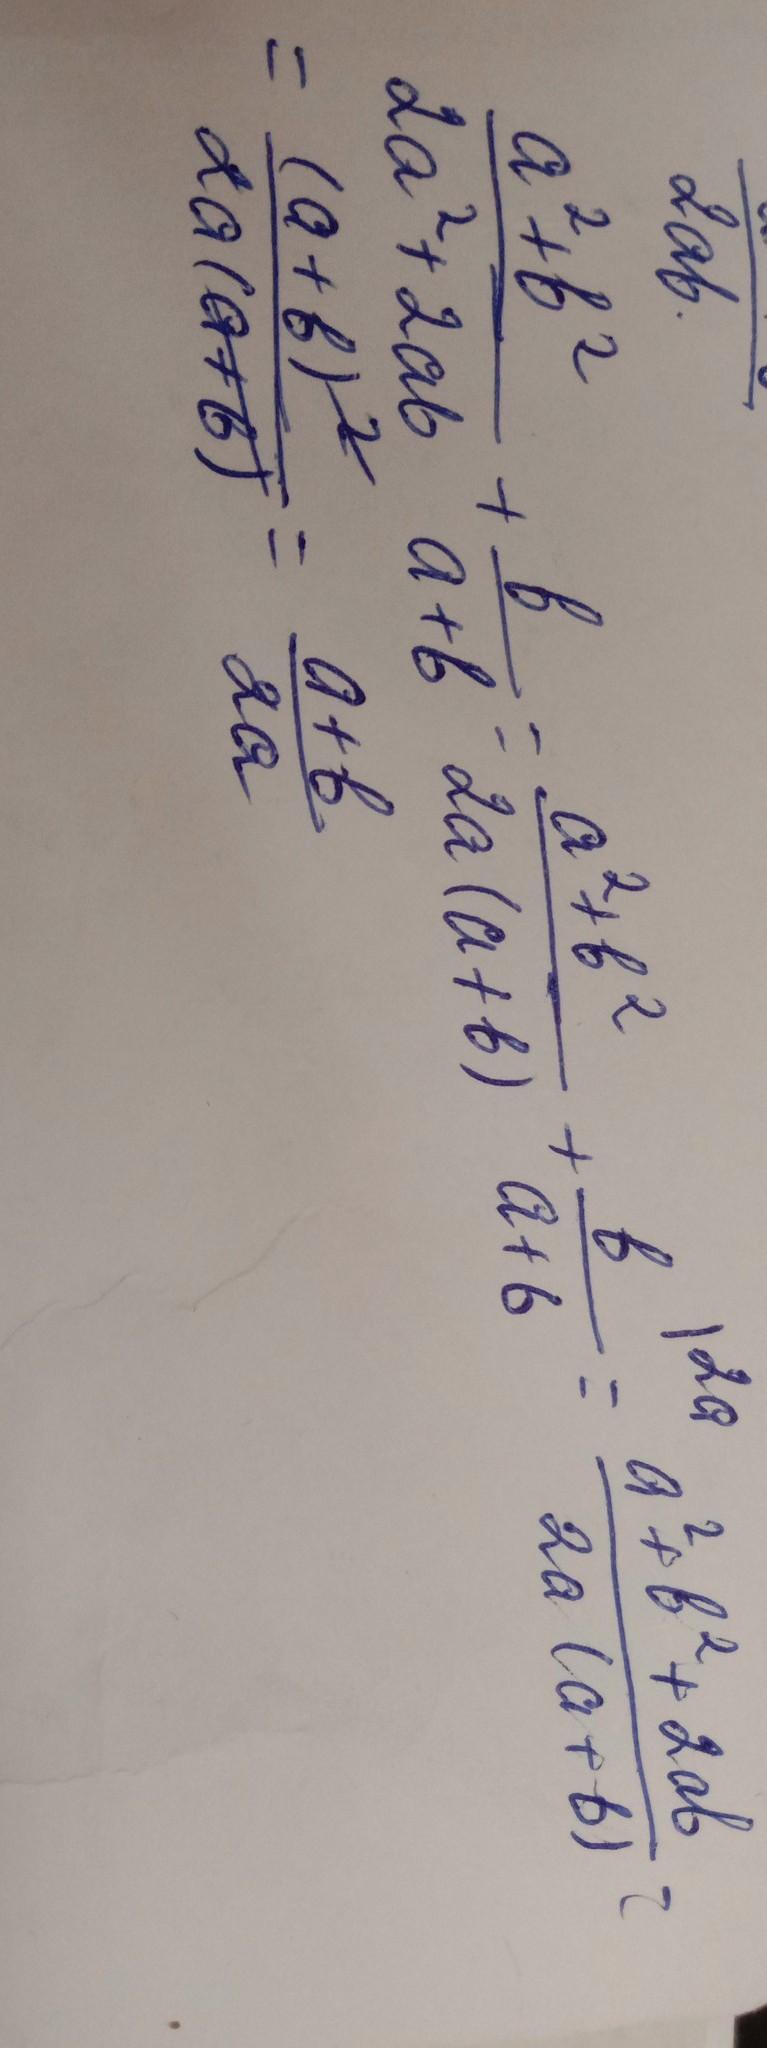 2ab.
\frac{a^2+b^2}{2a^2+2ab} + \frac{b}{a+b} = \frac{a^2+b^2}{2a(a+b)} + \frac{b^{\backslash 2a}}{a+b} = \frac{a^2+b^2+2ab}{2a(a+b)} =
= \frac{(a+b)^2}{2a(a+b)} = \frac{a+b}{2a}